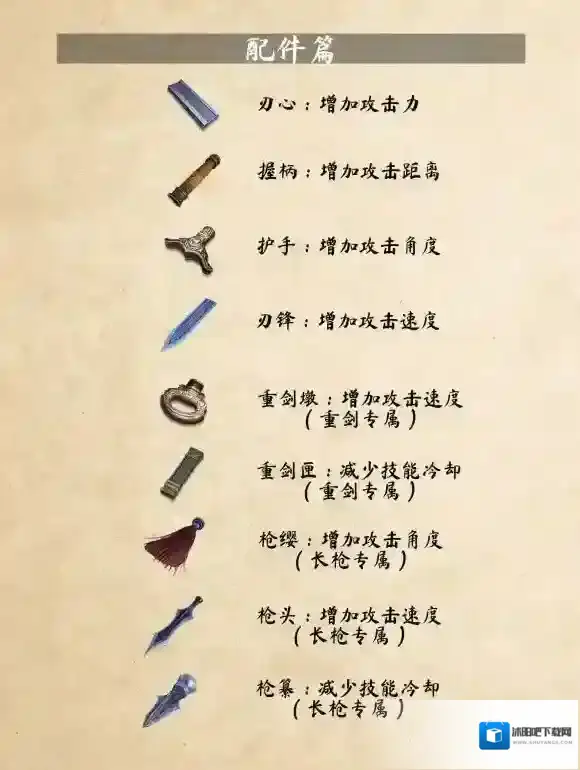 配件篇
刃心：增加攻击力
握柄：增加攻击距离
护手：增加攻击角度
刃锋：增加攻击速度
重剑墩：增加攻击速度
（重剑专属）
重剑匣：减少技能冷却
（重剑专属）
枪缨：增加攻击角度
（长枪专属）
枪头：增加攻击速度
（长枪专属）
枪纂：减少技能冷却
（长枪专属）
沐阳吧下载网